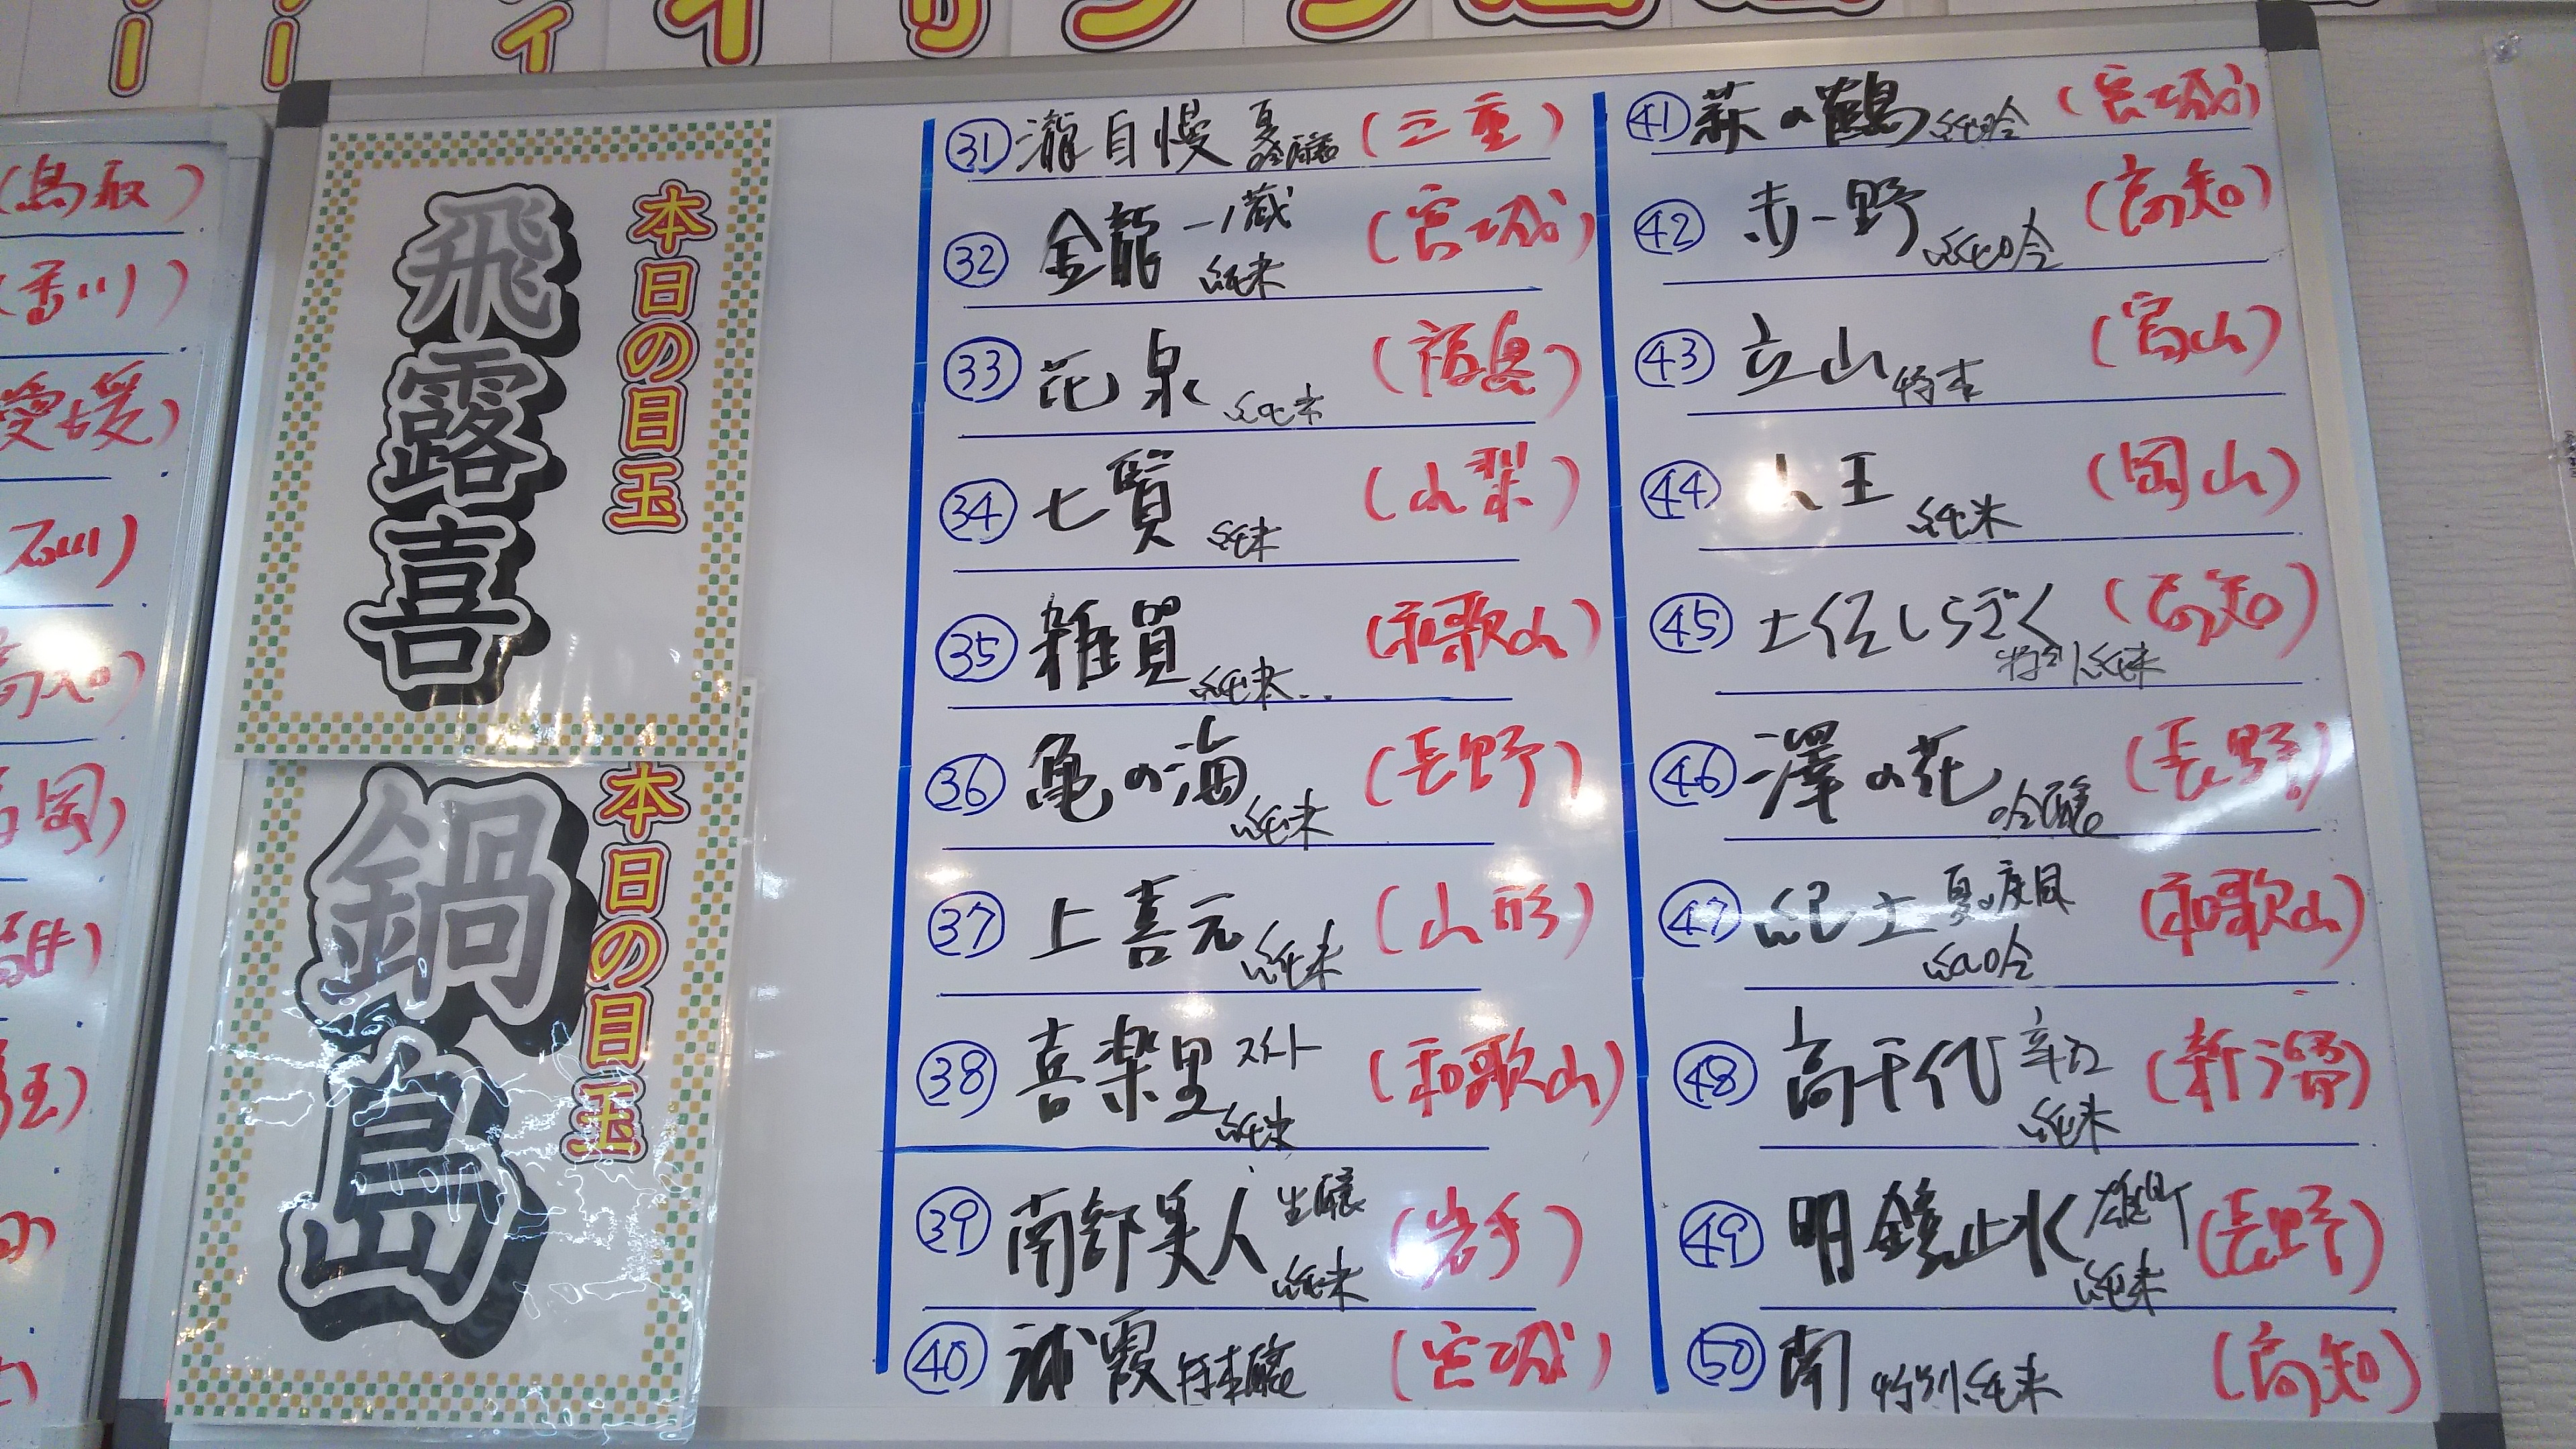 (鳥取)
(香川)
愛媛)
石川)
高知)
岡)
本日の目玉
飛露喜
本日の目玉
鍋島
㉛ 瀧自慢 夏吟醸 (三重)
㉜ 金龍 一ノ蔵 純米 (宮城)
㉝ 花泉 純米 (福島)
㉞ 七賢 純米 (山梨)
㉟ 雑賀 純米 (和歌山)
㊱ 亀の海 純米 (長野)
㊲ 上喜元 純米 (山形)
㊳ 喜楽里 スイート 純米 (和歌山)
㊴ 南部美人 生酛 純米 (岩手)
㊵ 浦霞 特本醸 (宮城)
㊶ 萩の鶴 純吟 (宮城)
㊷ 赤野 純吟 (高知)
㊸ 立山 特本 (富山)
㊹ 王 純米 (岡山)
㊺ 土佐しらぎく 特別純米 (高知)
㊻ 澤の花 吟醸 (長野)
㊼ 紀土 夏ノ疾風 純吟 (和歌山)
㊽ 高千代 辛口 純米 (新潟)
㊾ 明鏡止水 雄町 純米 (長野)
㊿ 南 特別純米 (高知)